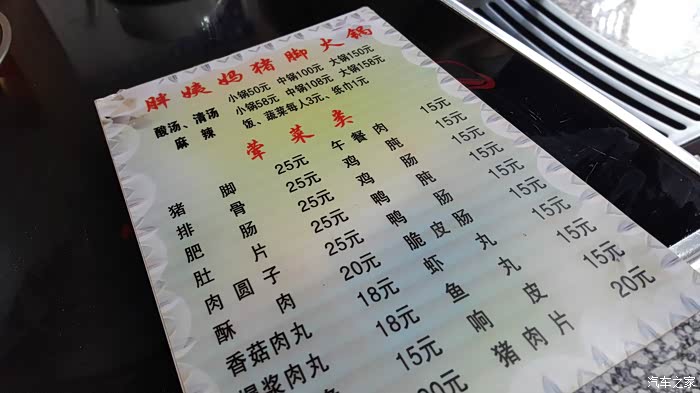 胖姨妈猪脚火锅
酸汤、清汤 小锅50元 中锅100元 大锅150元
麻辣 小锅58元 中锅108元 大锅158元
饭、蔬菜每人3元、纸巾1元
荤菜类
猪脚 25元 午餐肉 15元
排骨 25元 鸡肫 15元
肥肠 25元 鸡肠 15元
肚片 25元 鸭肫 15元
肉圆子 25元 鸭肠 15元
酥肉 20元 脆皮肠 15元
香菇肉丸 18元 虾丸 15元
爆浆肉丸 18元 鱼丸 15元
15元 响皮 15元
20元 猪肉片 20元
汽车之家